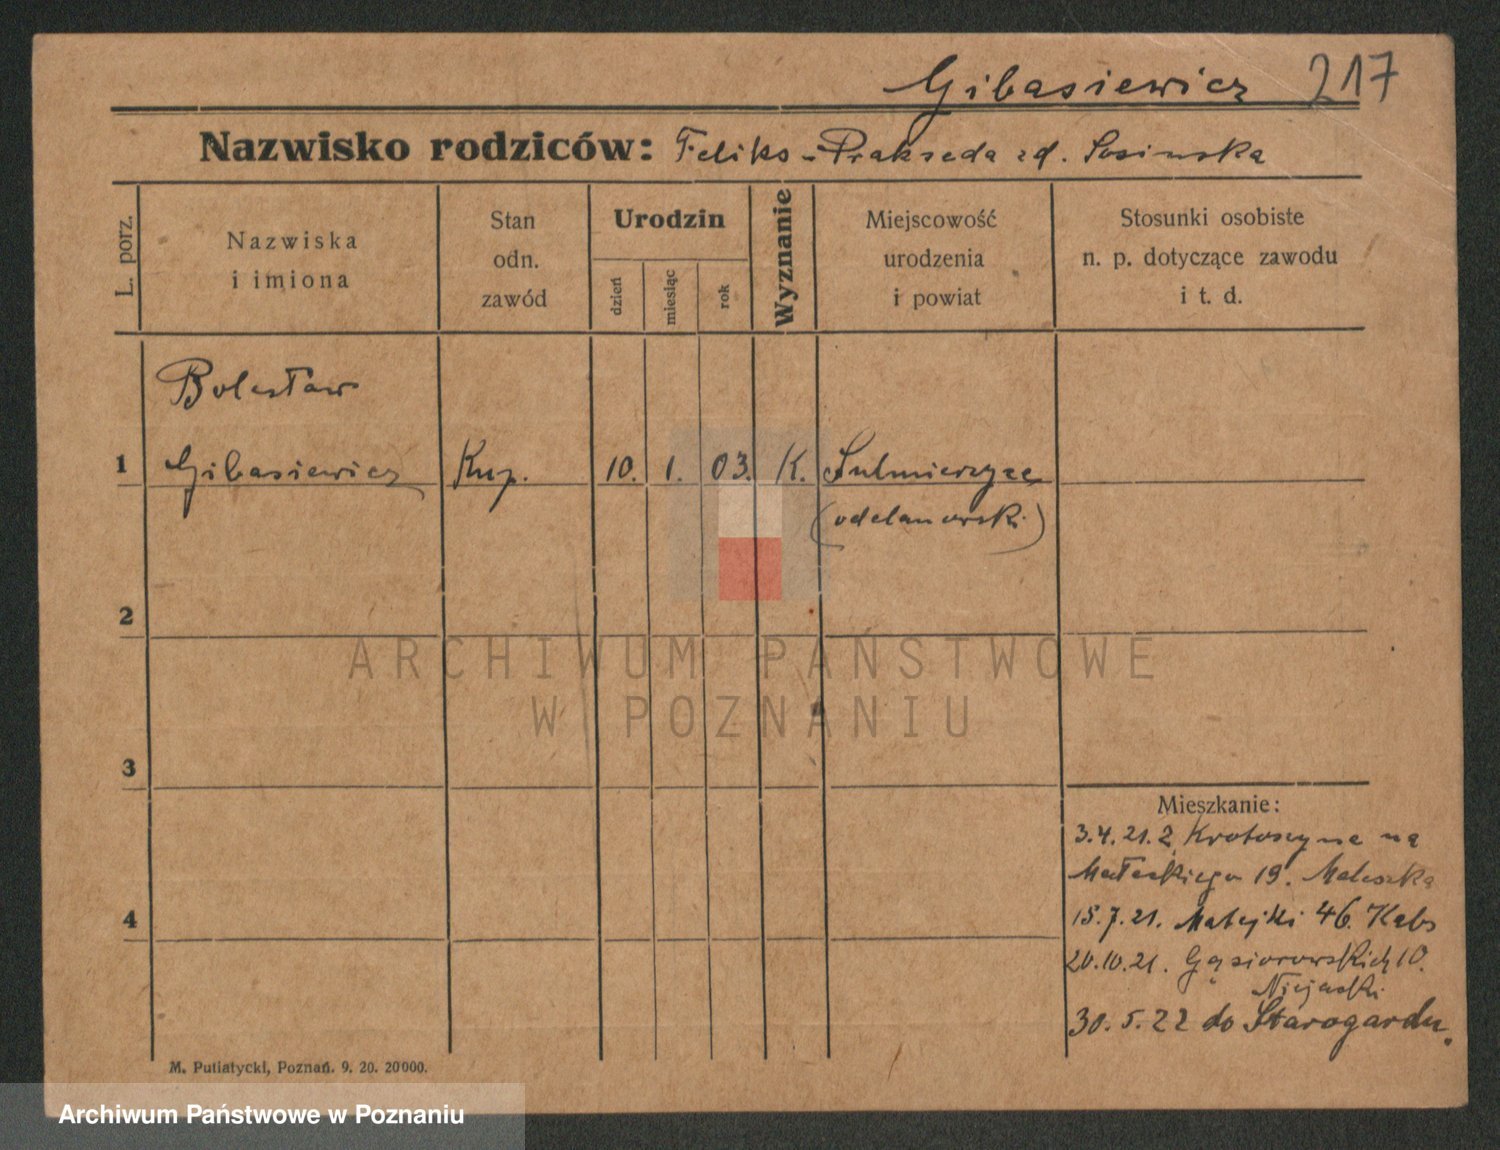 Gibasiewicz 217
Nazwisko rodziców: Feliks - Prakseda zd. Sosinska
L. porz.
Nazwiska
i imiona
Stan
odn.
zawód
Urodzin
dzień
miesiąc
rok
Wyznanie
Miejscowość
urodzenia
i powiat
Stosunki osobiste
n. p. dotyczące zawodu
i t. d.
Bolesław
1 Gibasiewicz Kup. 10. 1. 03. K. Sulmierzyce
(odolanowski)
2
ARCHIWUM PAŃSTWOWE
W POZNANIU
3
Mieszkanie:
3.4.21. z Krotoszyna na
Małeckiego 19. Maleszka
4 15.7.21. Matejki 46. Kabs
20.10.21. Gąsiorowskich 10.
30.5.22 do Starogardu.
M. Putiatycki, Poznań. 9. 20. 20000.
Archiwum Państwowe w Poznaniu